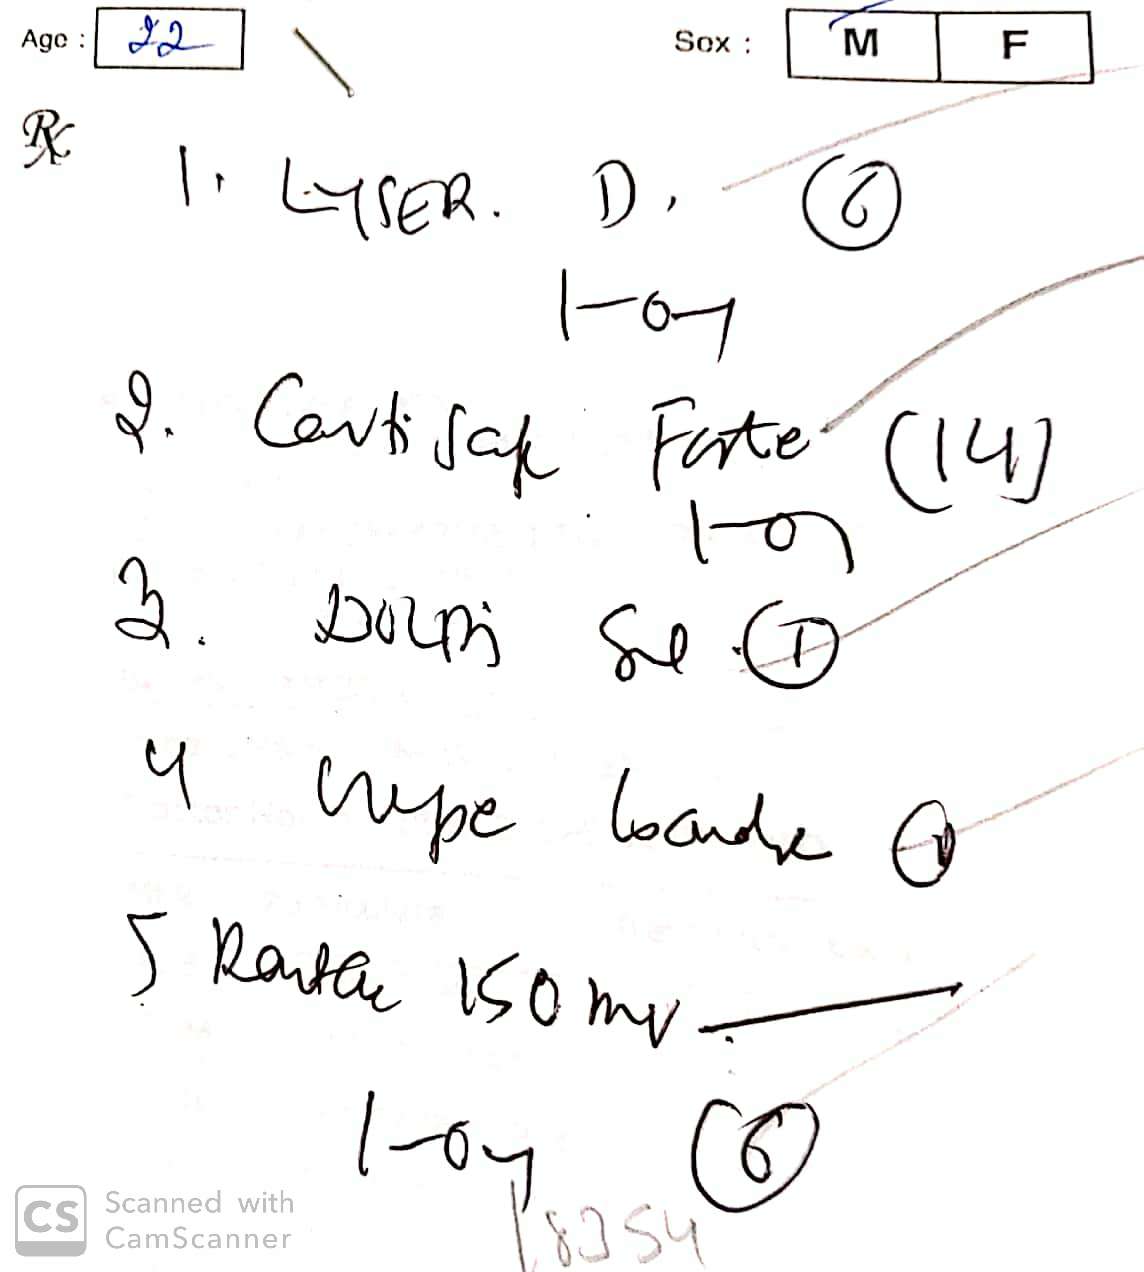 Age : 22 Sex : M F
Rx
1. LYSER. D. 6
1-0-1
2. Cartisafe Forte (14)
1-0-1
3. Gel 1
4 crepe bandage 1
5 Rantac 150 mg
1-0-1 6
18254
CS Scanned with
CamScanner